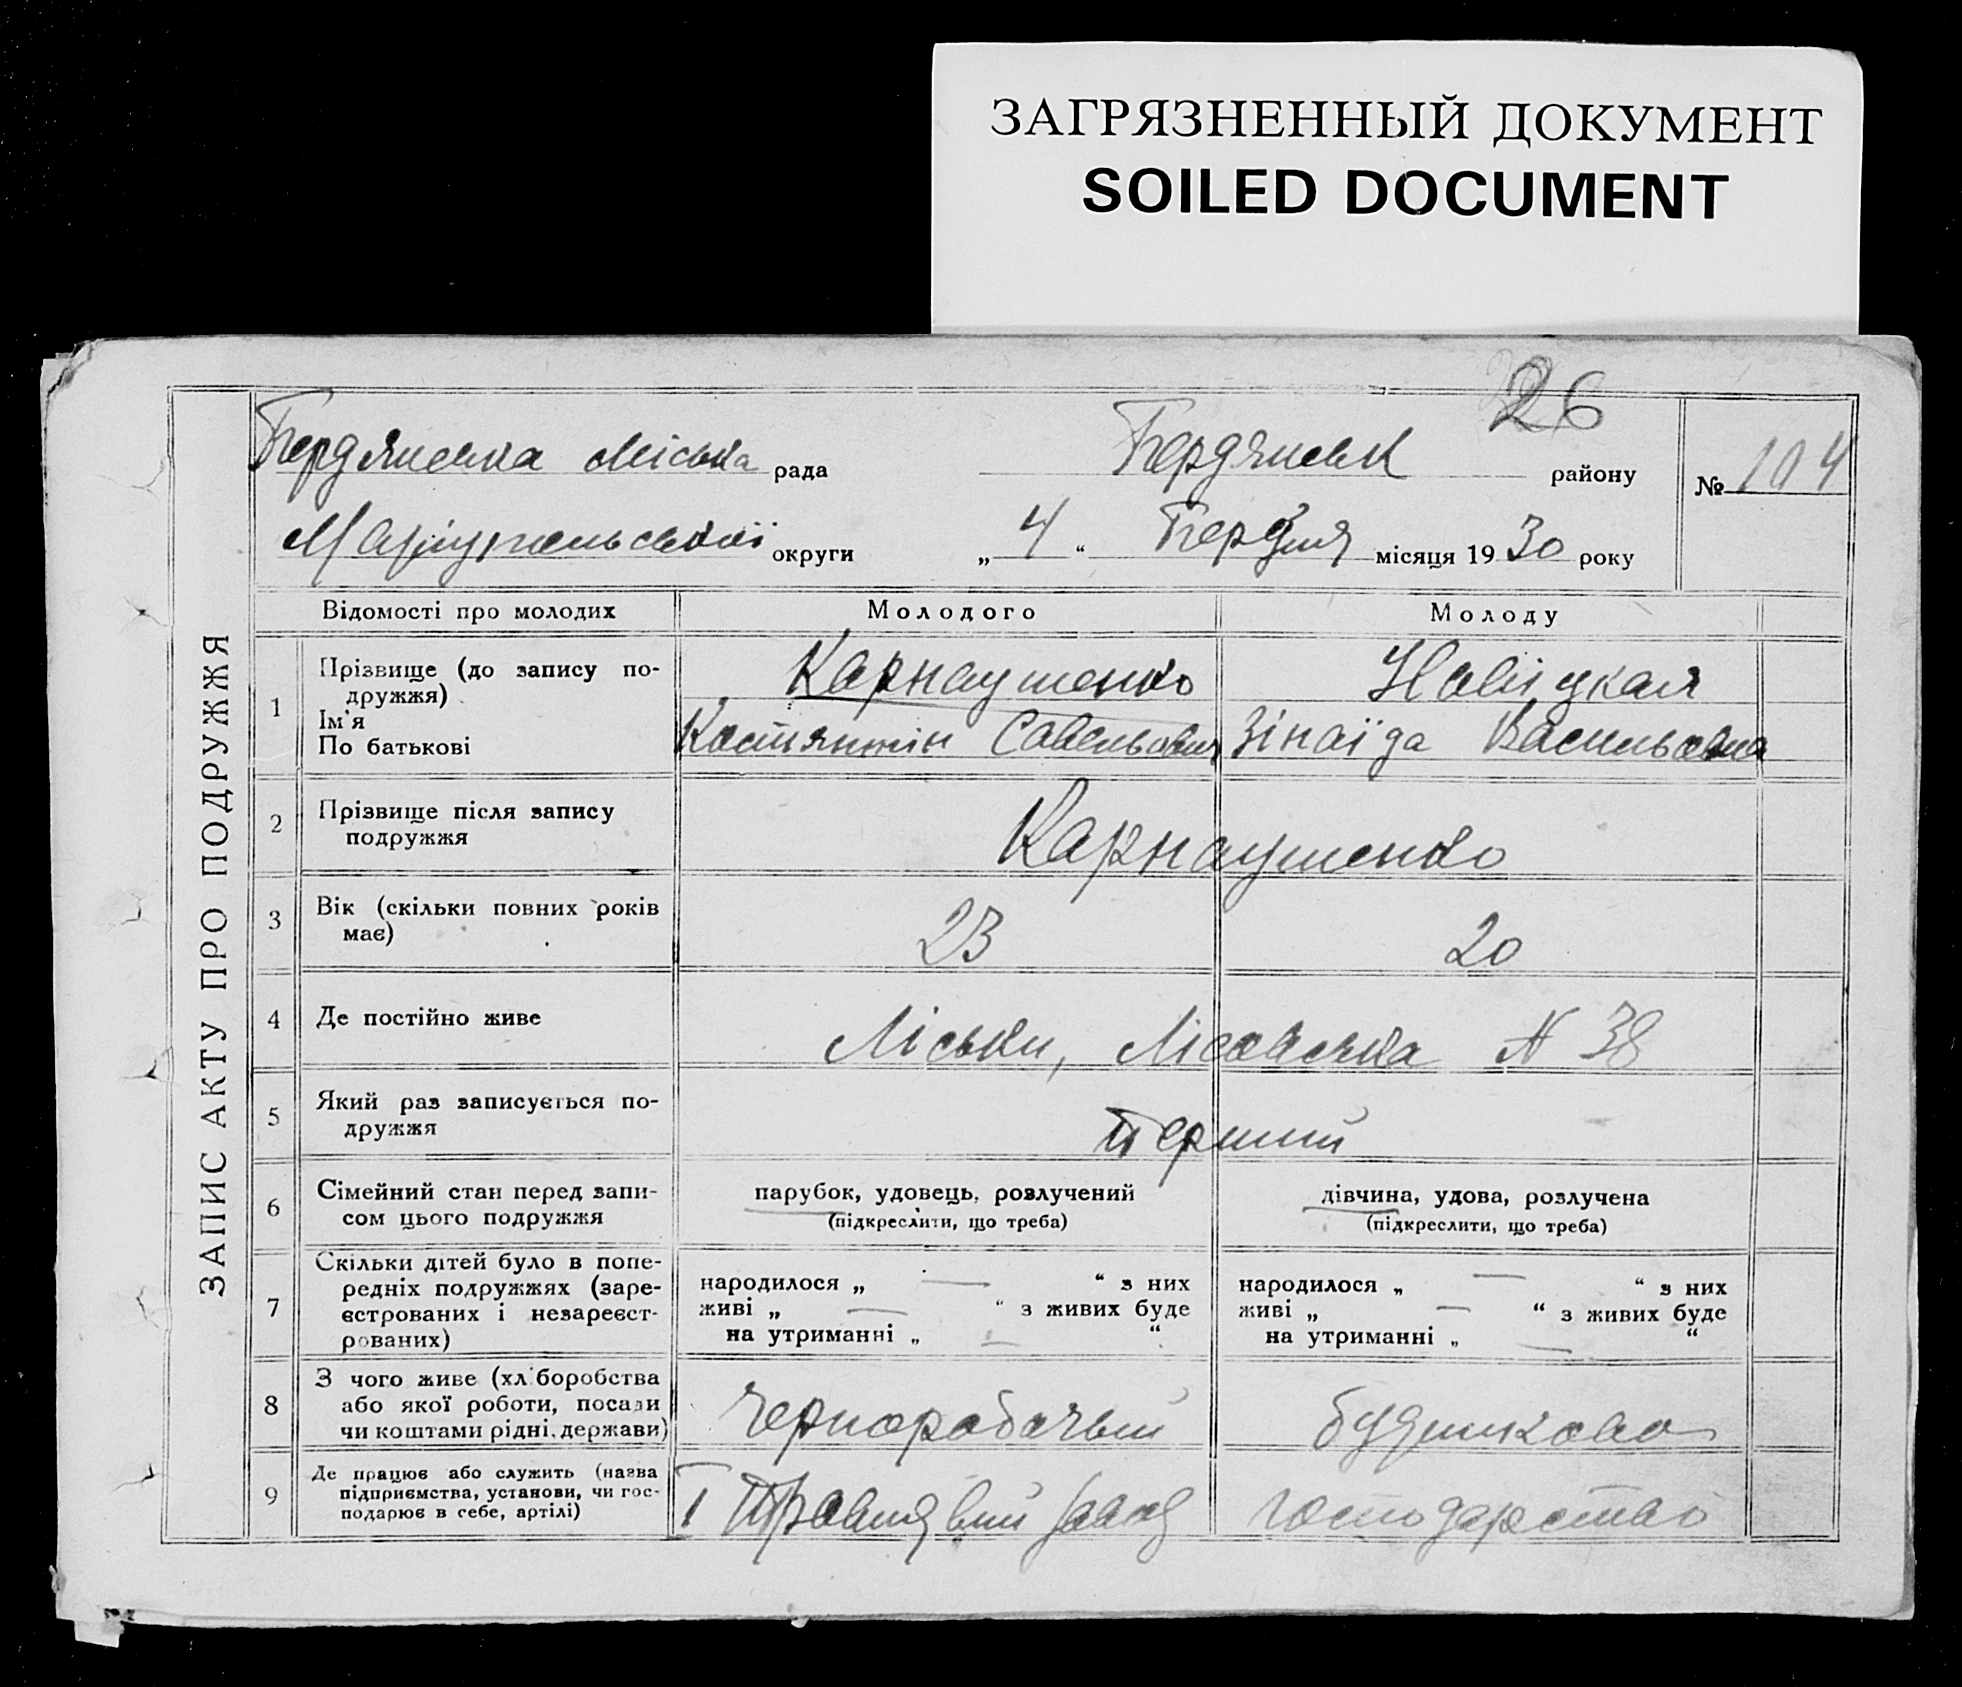 ЗАГРЯЗНЕННЫЙ ДОКУМЕНТ
SOILED DOCUMENT
26
Бердянська міська рада Бердянськ району № 104
Маріупольської округи „ 4 “ Березня місяця 19 30 року
ЗАПИС АКТУ ПРО ПОДРУЖЖЯ
Відомості про молодих Молодого Молоду
1 Прізвище (до запису по-
дружжя) Карнаушенко Новіцкая
Ім'я
По батькові Костянтін Савельович Зінаїда Васильовна
2 Прізвище після запису
подружжя Карнаушенко
3 Вік (скільки повних років
має) 23 20
4 Де постійно живе Ліски, Лісківська N 38
5 Який раз записується по-
дружжя Перший
6 Сімейний стан перед запи-
сом цього подружжя
парубок, удовець, розлучений
(підкреслити, що треба)
дівчина, удова, розлучена
(підкреслити, що треба)
7 Скільки дітей було в попе-
редніх подружжях (заре-
єстрованих і незареєст-
рованих)
народилося „ — “ з них
живі „ — “ з живих буде
на утриманні „ — “
народилося „ — “ з них
живі „ — “ з живих буде
на утриманні „ — “
8 З чого живе (хліборобства
або якої роботи, посади
чи коштами рідні, держави)
чернорабочий
9 Де працює або служить (назва
підприємства, установи, чи гос-
подарює в себе, артілі)
завод господарство